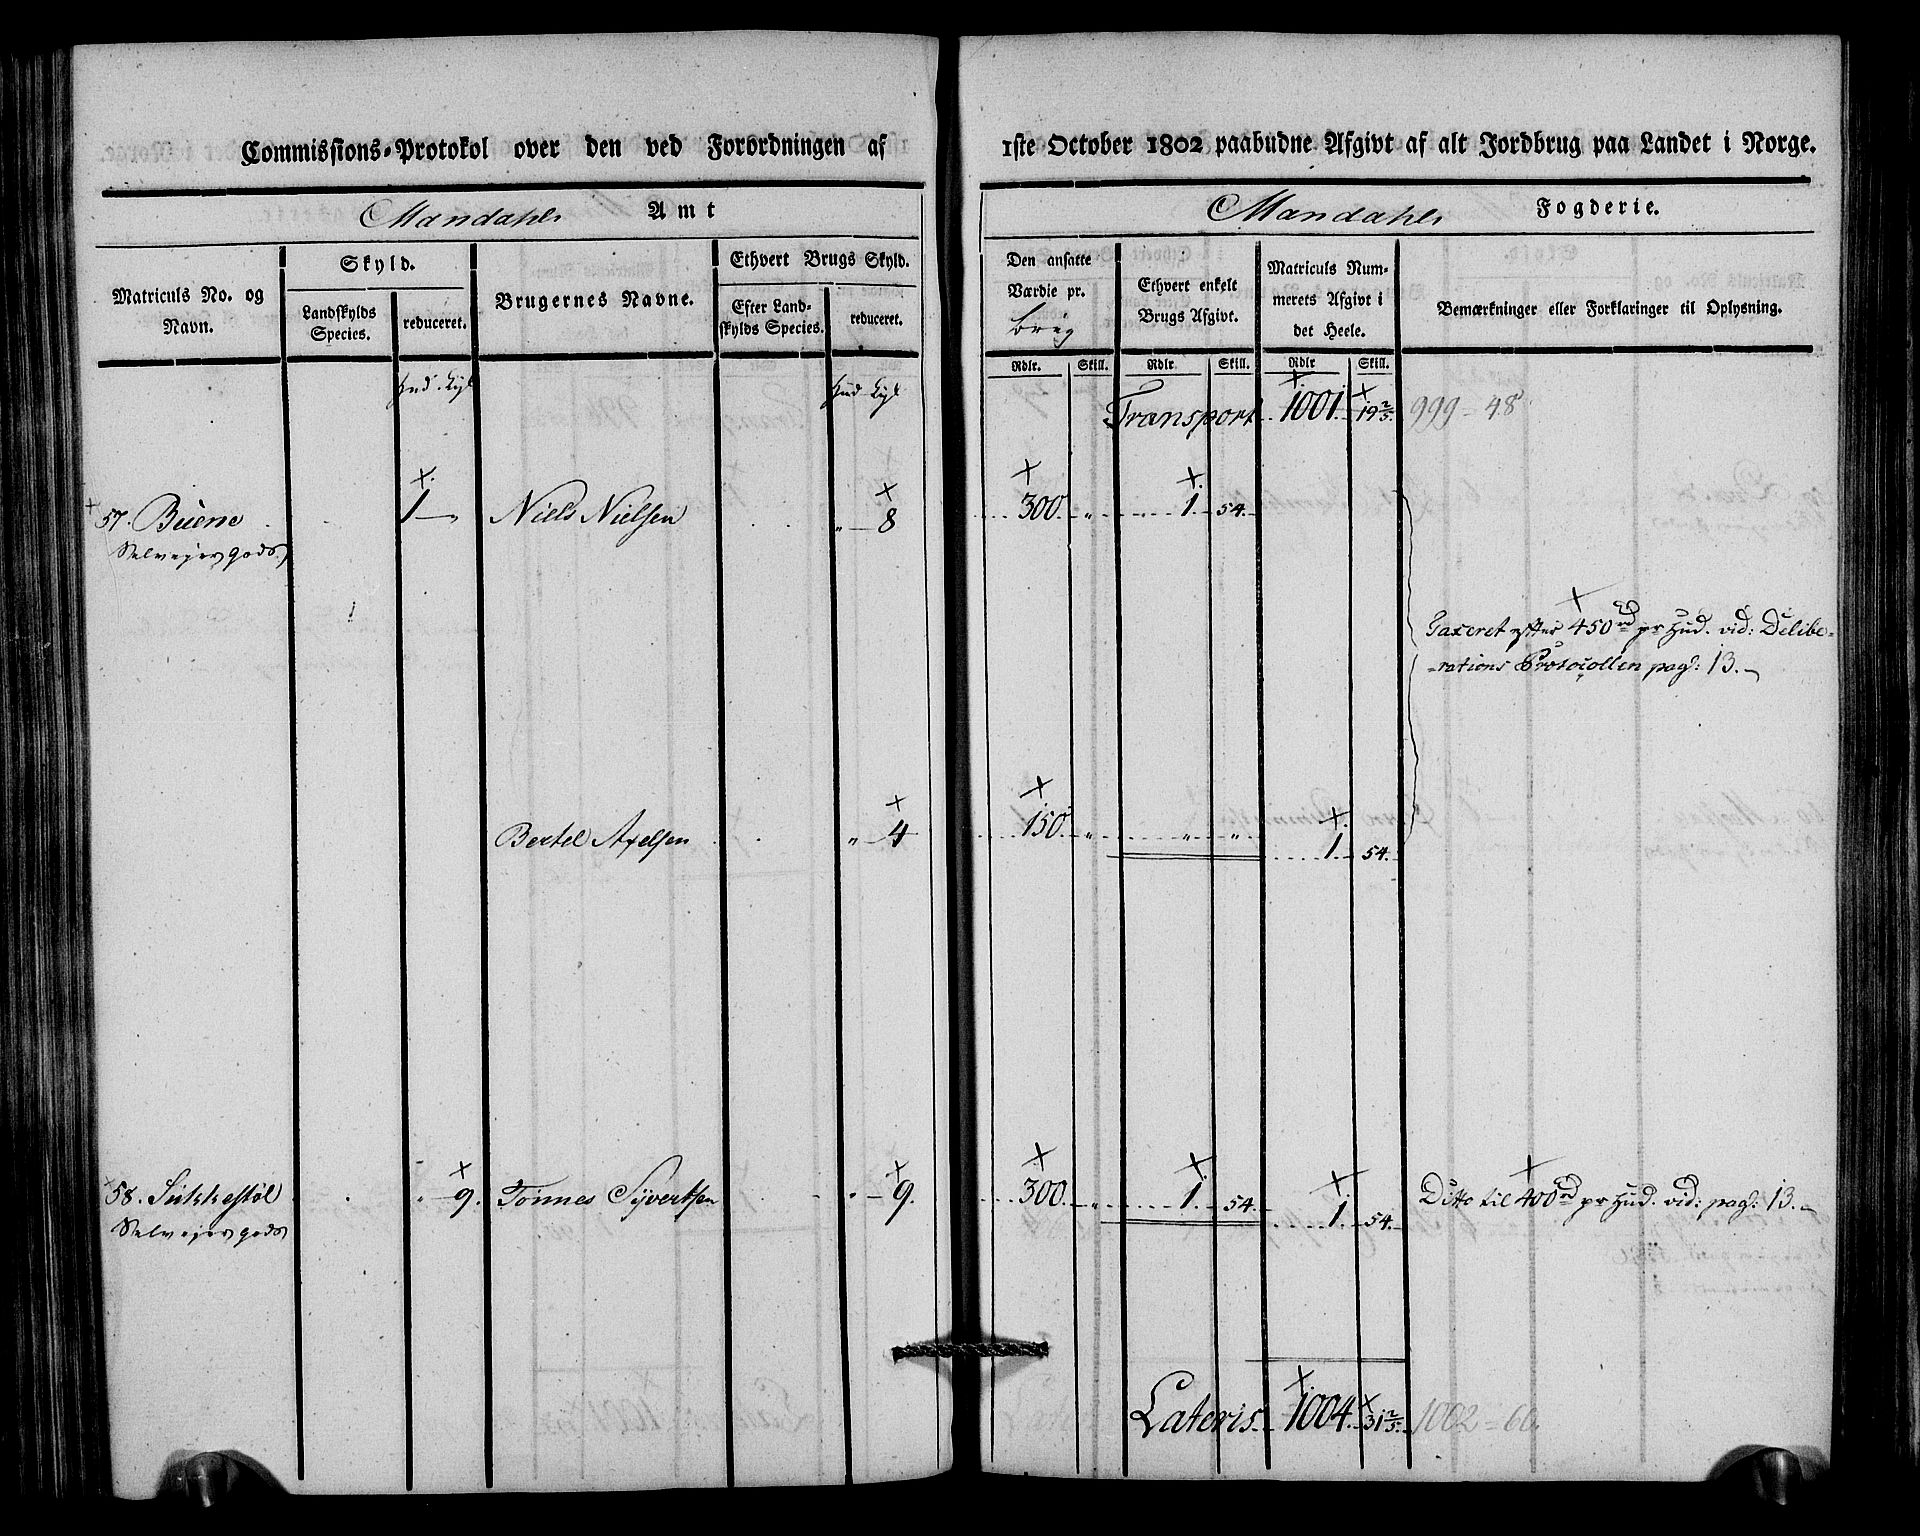 Commissions-Protokol over den ved Forordningen af 1ste October 1802 paabudne Afgivt af alt Jordbrug paa Landet i Norge.
Mandahls Amt
Mandahls Fogderie.
Matriculs No. og Navn.
Skyld.
Landskylds Species.
reduceret.
Brugernes Navne.
Ethvert Brugs Skyld.
Efter Landskylds Species.
reduceret.
Den ansatte Værdie pr. brug
Ethvert enkelt Brugs Afgivt.
Matriculs Nummerets Afgivt i det Heele.
Bemærkninger eller Forklaringer til Oplysning.
Rdlr. Skill. Rdlr Skill. Rdlr Skill.
Hud. Hud
Transport 1001. 19 2/5. 999 = 48
57. Buene 1 — Niels Nielsen " — 8 300. " 1. 54.
Selveyergods
Taxeret efter 450 rd pr Hud. vid: Delibe-
-rations Protocollen pag: 13. —
Bertel Axelsen " — 4 150. " " " 1. 54.
58. Sukkestøl " — 9. Tønnes Syvertsen " — 9. 300. " 1. 54. 1. 54. Ditto til 400 rd pr Hud. vid: pag: 13. —
Selveyergods
Lateris. 1004. 31 2/5. 1002 = 60.